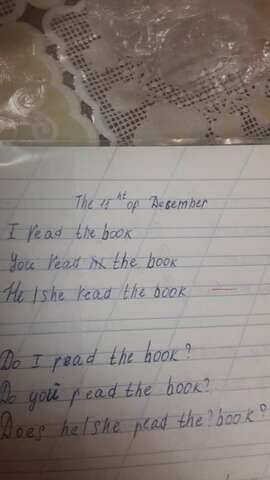 The 13 ht of December
I read the book
you read the book
He / she read the book
Do I read the book?
Do you read the book?
Does he/she read the? book?